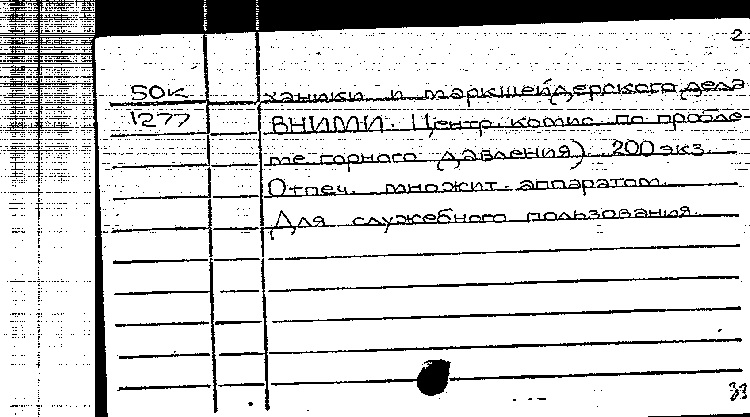 2
50к ханики и маркшейдерского дела
1277 ВНИМИ. Центр. комис по пробле-
ме горного давления) 200 экз.
Отпеч. множит. аппаратом.
Для служебного пользования.
33